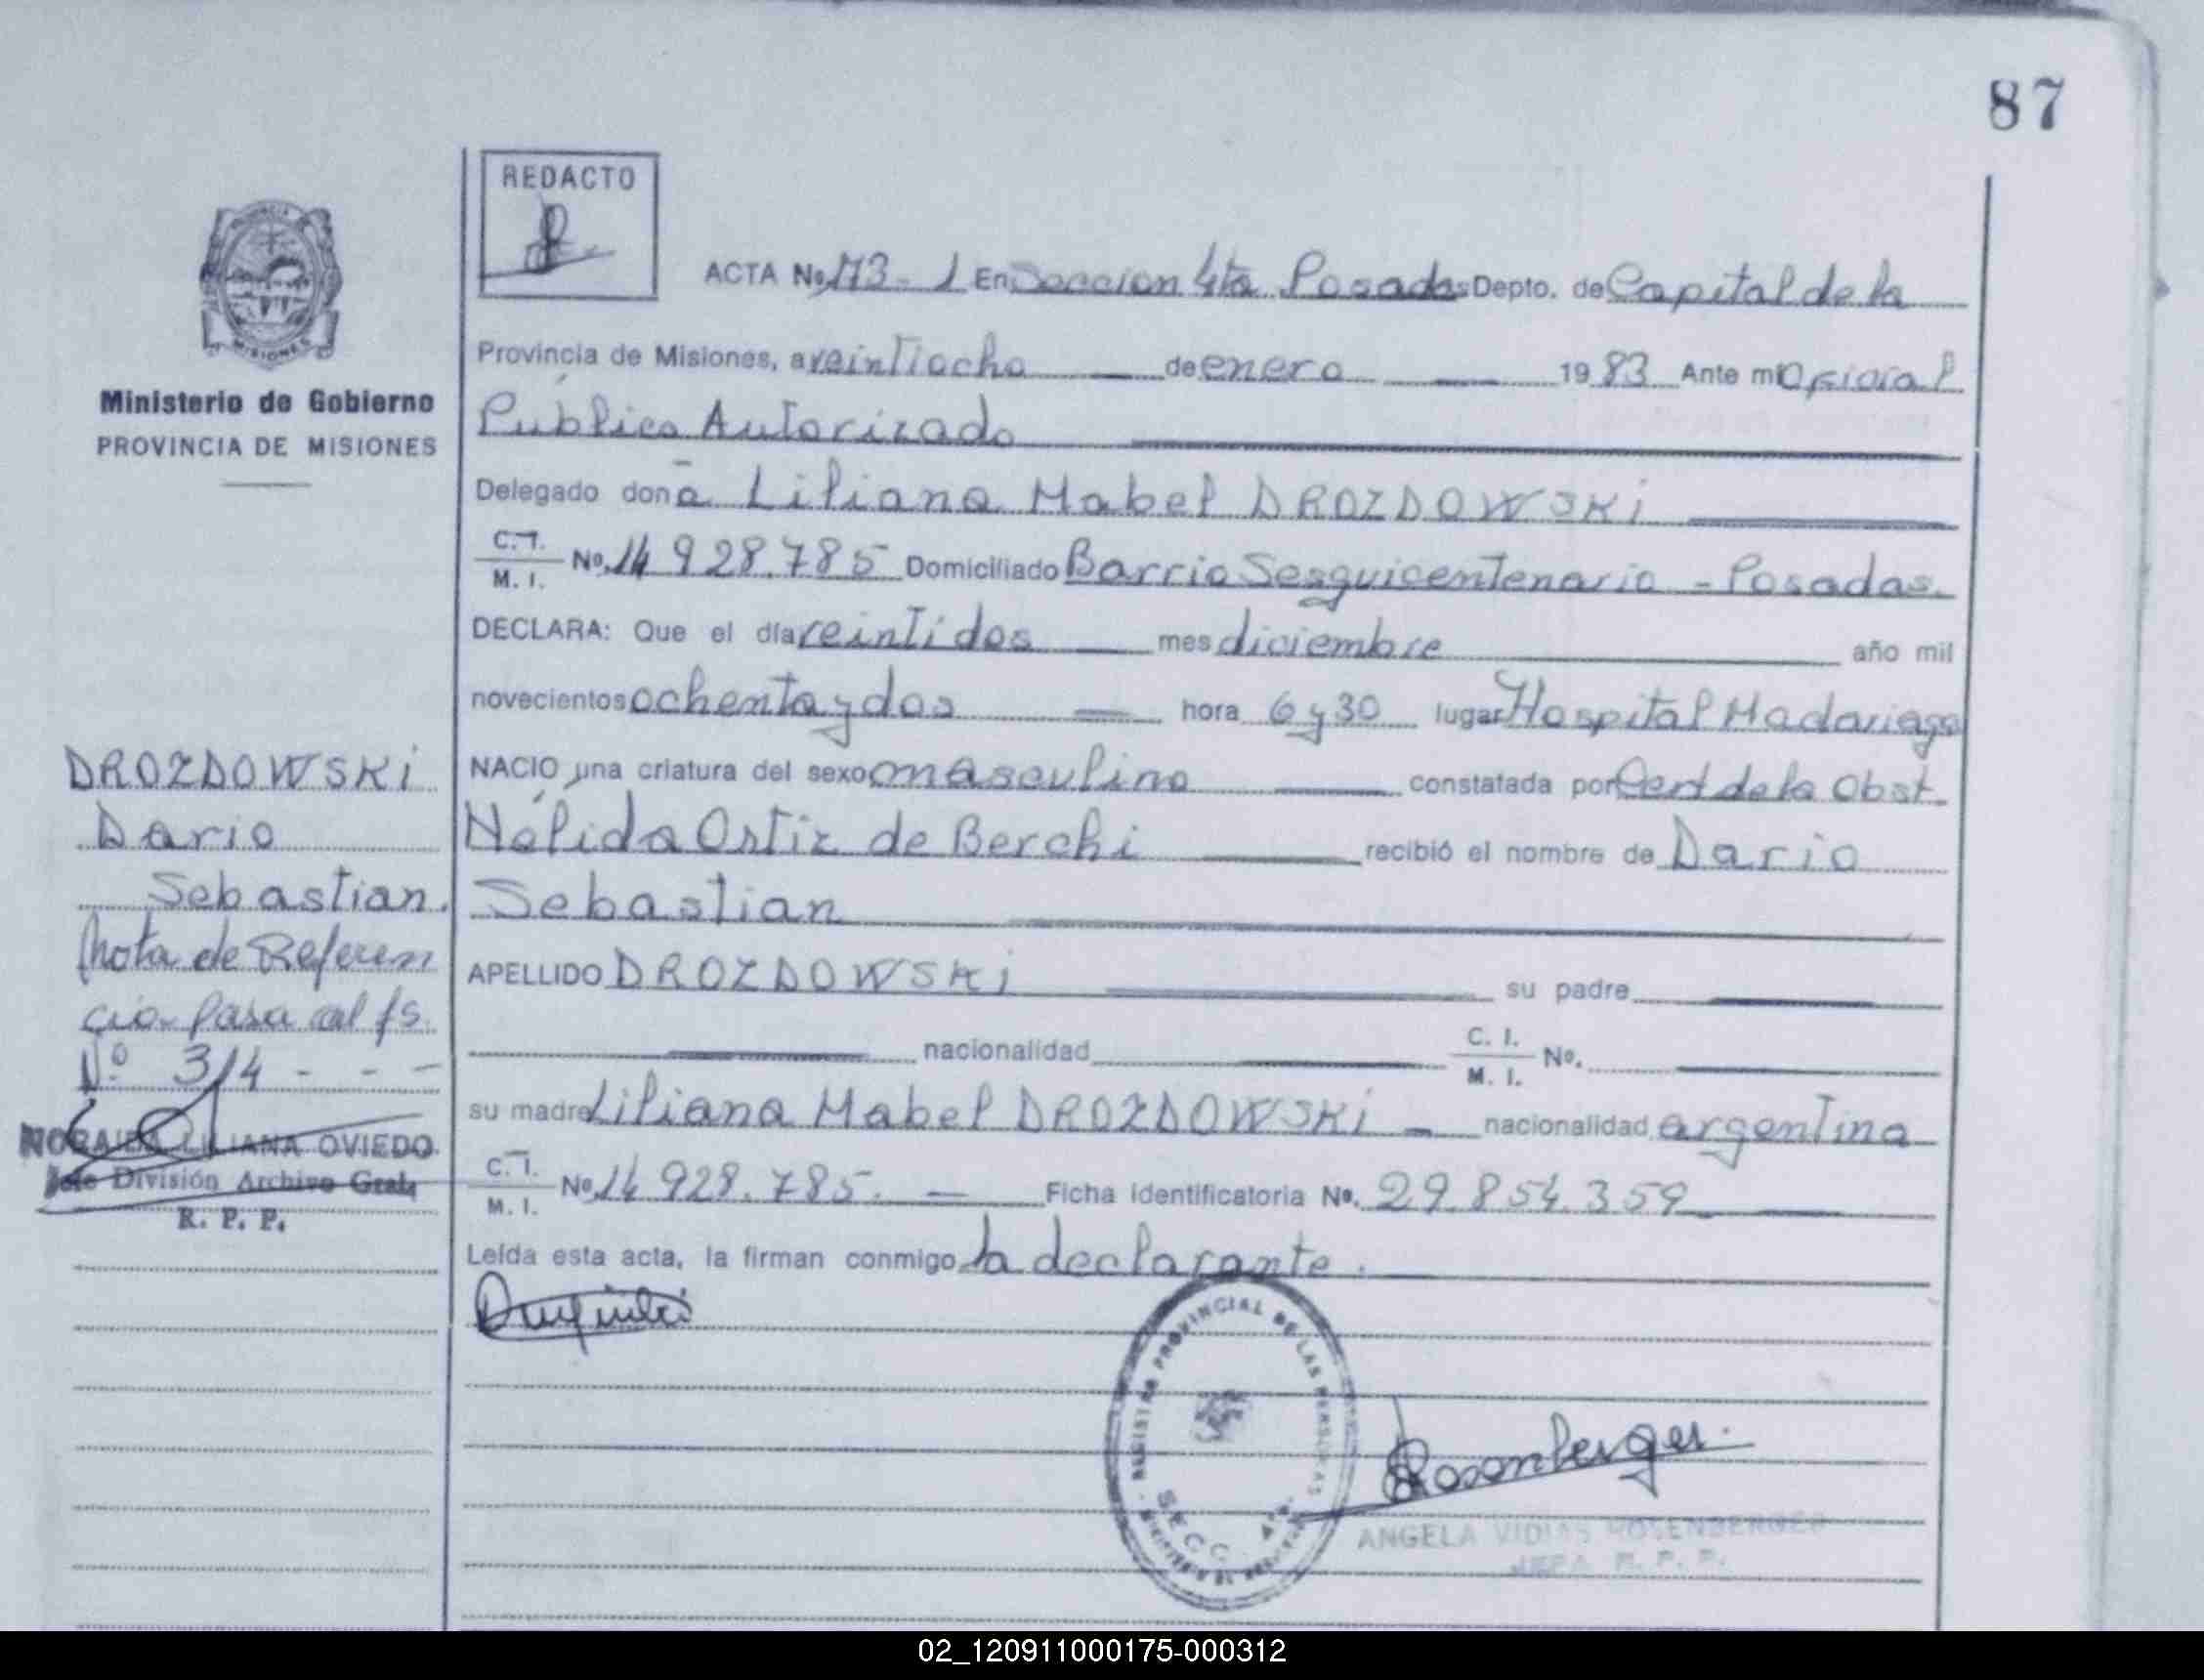 87
REDACTO
MISIONES
Ministerio de Gobierno
PROVINCIA DE MISIONES
ACTA No. 173 - 1 En Seccion 4ta Posadas Depto. de Capital de la
Provincia de Misiones, a veintiocho de enero 1983 Ante mi Oficial
Público Autorizado
Delegado doña Liliana Mabel DROZDOWSKi
C. I.
M. I. Nº. 14 928.785 Domiciliado Barrio Sesquicentenario - Posadas.
DECLARA: Que el día veintidos mes diciembre año mil
novecientos ochenta y dos hora 6 y 30 lugar Hospital Madariaga
NACIO una criatura del sexo masculino constatada por Cert de la Obst.
Nélida Ortiz de Berchi recibió el nombre de Dario
Sebastian
APELLIDO DROZDOWSKi su padre
nacionalidad C. I.
M. I. Nº.
su madre Liliana Mabel DROZDOWSKi nacionalidad argentina
C. I.
M. I. Nº 14 928.785. Ficha Identificatoria Nº. 29.854.359
Leída esta acta, la firman conmigo la declarante.
DROZDOWSKi
Dario
Sebastian.
Nota de Referen
cia- Pasa al fs.
Nº 314 - - -
LILIANA OVIEDO
Jefe División Archivo Gral.
R. P. P.
PROVINCIAL DE LAS PERSONAS
SECC. 4ta
Rosenberger
ANGELA VIDIAS ROSENBERGER
JEFA R. P. P.
02_120911000175-000312